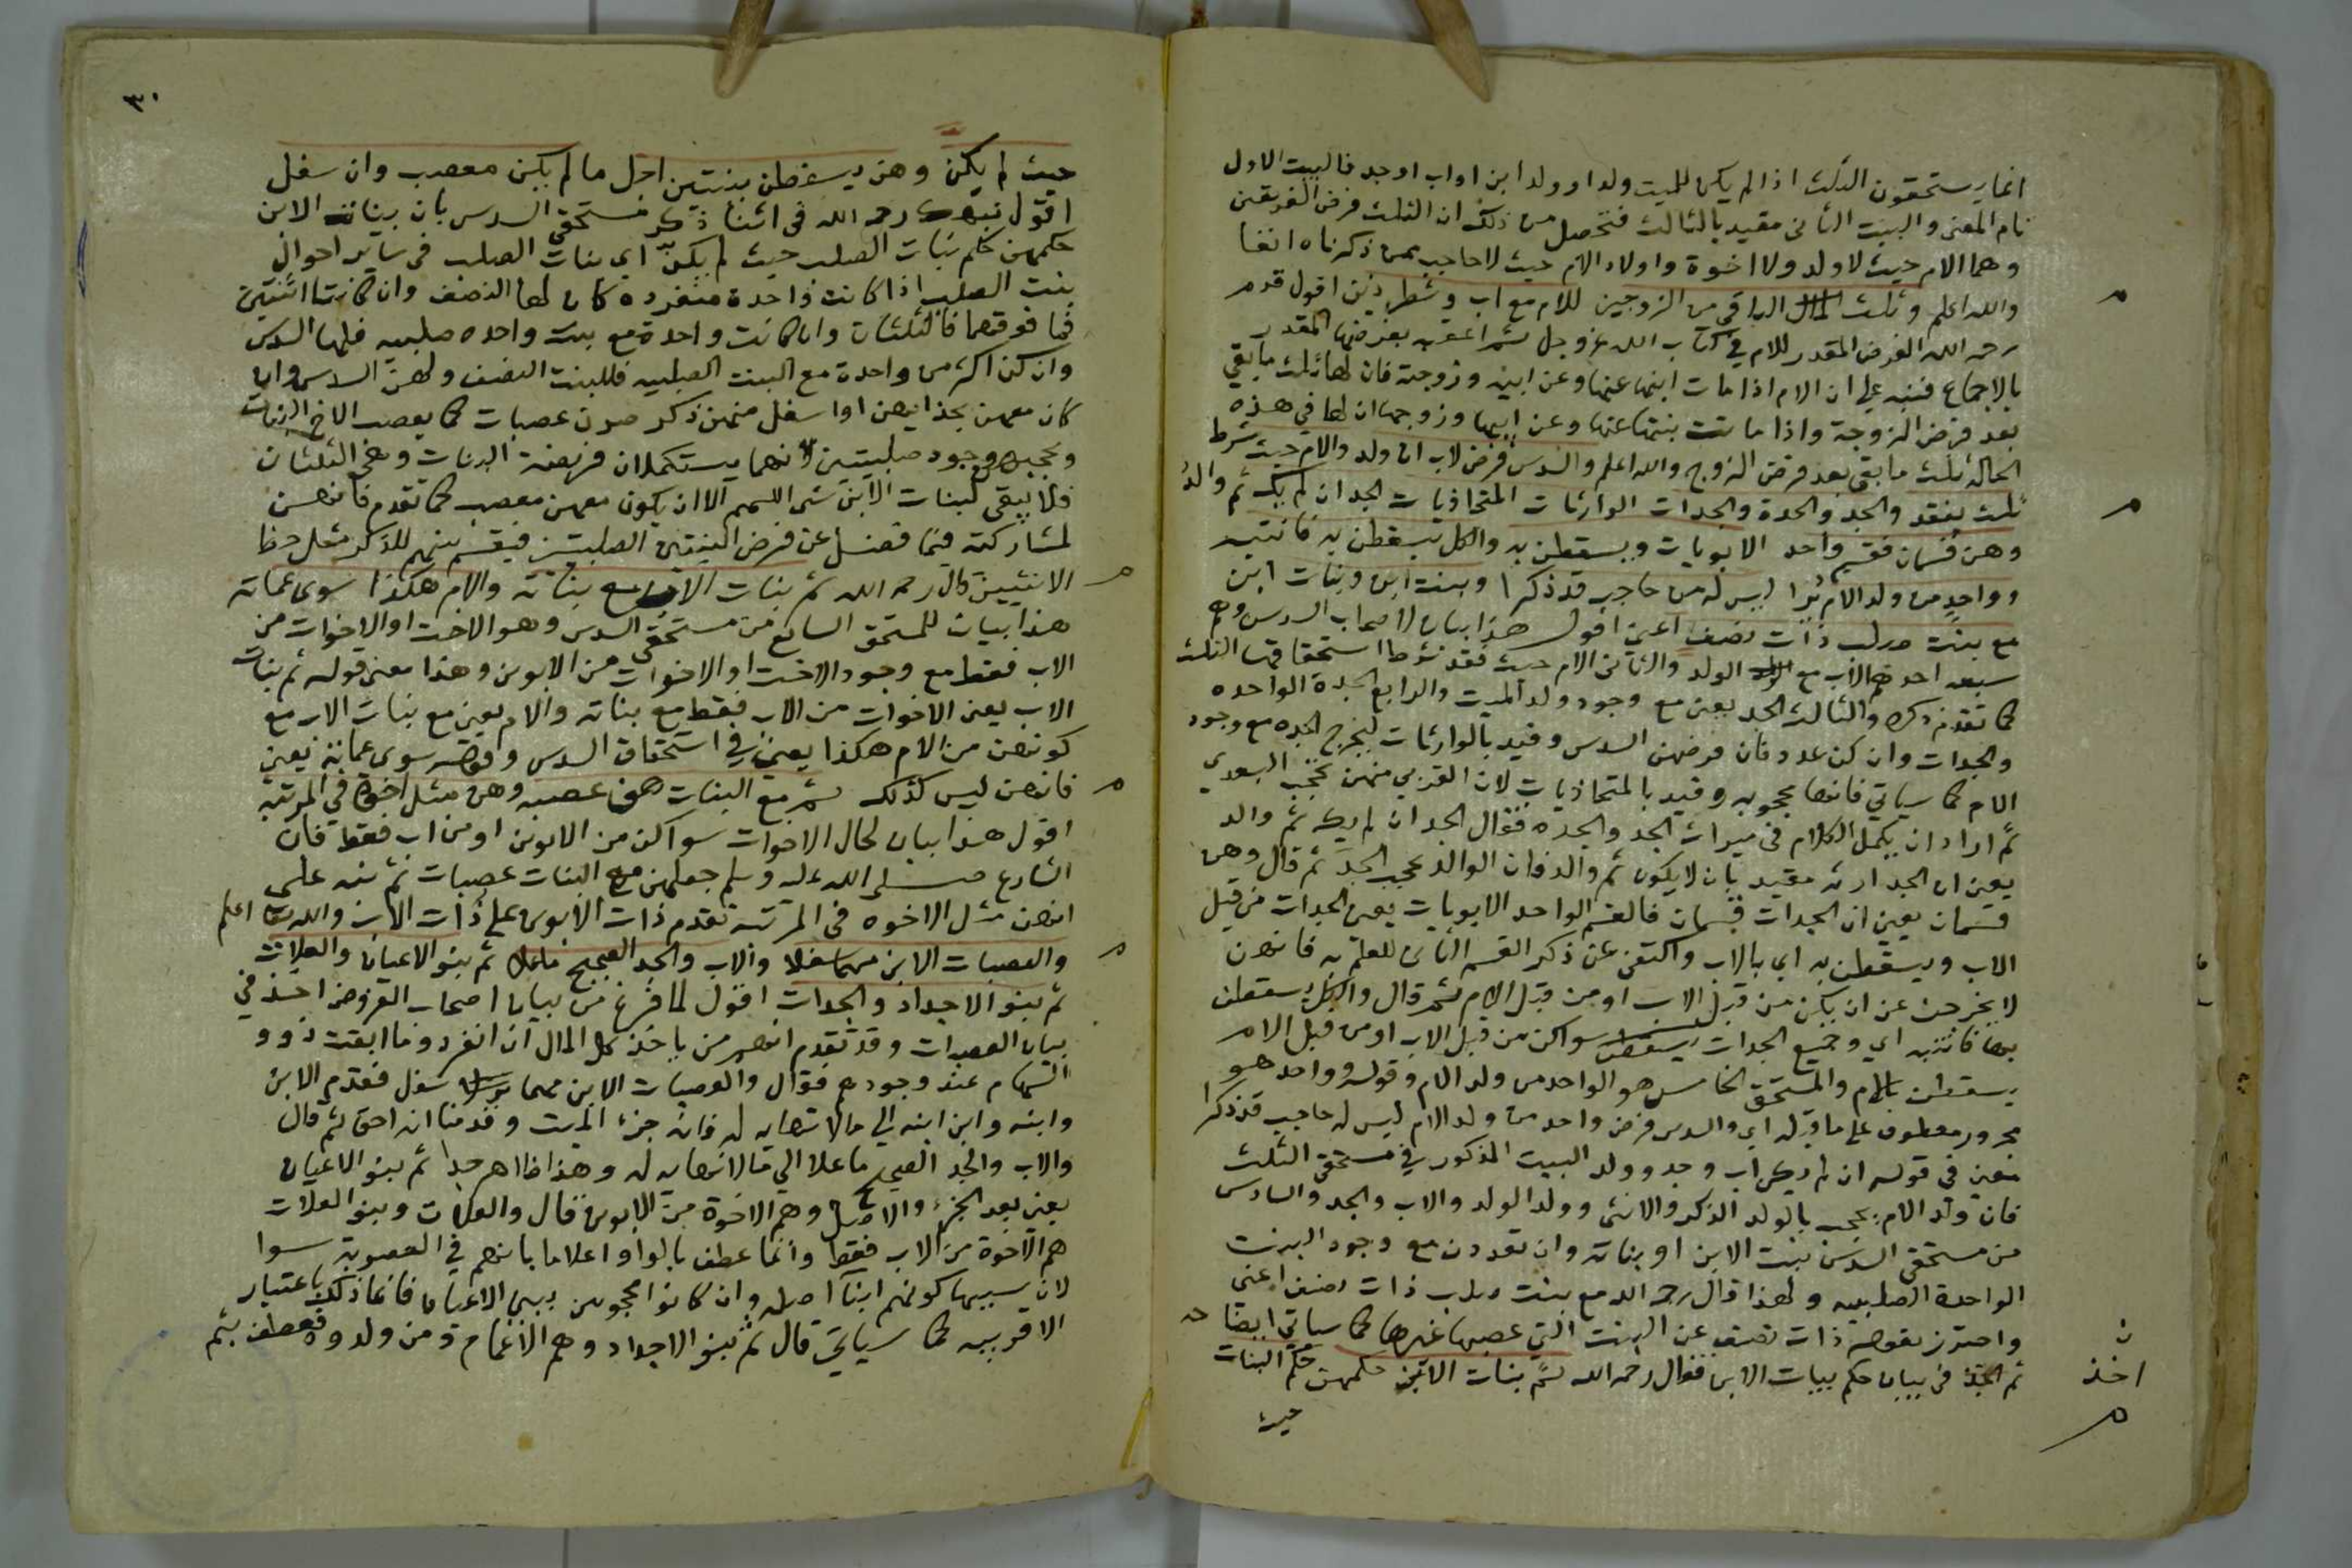 انما يستحقون الثلث اذا لم يكن للميت ولد او ولد ابن او اب او جد فالبيت الاول
تام المعنى والبيت الثانى مقيد بالثالث فتحصل من ذلك ان الثلث فرض الفريقين
وهما الام حيث لا ولد ولا اخوة واولاد الام حيث لا حاجب ممن ذكرناه انفا
والله اعلم وثلث الباقى من الزوجين للام مع اب وشطر ذين اقول قدم
رحمه الله الفرض المقدر للام في كتاب الله عز وجل ثم اعقبه بفرضها المقدر
بالاجماع فنبه على ان الام اذا مات ابنها عنها وعن ابيه وزوجته فان لها ثلث ما بقي
بعد فرض الزوجة واذا ماتت بنتها عنها وعن ابيها وزوجها ان لها في هذه
الحالة ثلث ما بقى بعد فرض الزوج والله اعلم والسدس فرض لاب ان ولد والام حيث شرط
ثلث يفقد والجد والجدة والجدات الوارثات المتحاذيات الجد ان لم يك ثم والد
وهن قسمان فقسم واحد الابويات ويسقطن به والكل يسقطن بها فانتبه
وواحد من ولد الام يرا ليس له من حاجب قد ذكرا وبنت ابن وبنات ابن
مع بنت صلب ذات نصف اعني اقول هذا بيان لاصحاب السدس وهم
سبعة احدهم الاب مع الولد والثانى الام حيث فقد شرط استحقاقها الثلث
كما تقدم ذكره والثالث الجد يعني مع وجود ولد الميت والرابع الجدة الواحده
والجدات وان كن عدد فان فرضهن السدس وقيد بالوارثات ليخرج الجده مع وجود
الام كما سياتي فانها محجوبه وقيد بالمتحاذيات لان القربى منهن تحجب البعدي
ثم اراد ان يكمل الكلام في ميراث الجد والجده فقال الجد ان لم يك ثم والد
يعني ان الجد ارثه مقيد بان لا يكون ثم والد فان الوالد يحجب الجد ثم قال وهن
قسمان يعني ان الجدات قسمان فالقسم الواحد الابويات يعني الجدات من قبل
الاب ويسقطن به اي بالاب واكتفى عن ذكر القسم الثانى للعلم به فانهن
لا يخرجن عن ان يكن من قبل الاب او من قبل الام ثم قال والكل يسقطن
بها فانتبه اي وجميع الجدات سوا كن من قبل الاب او من قبل الام
يسقطن بالام والمستحق الخامس هو الواحد من ولد الام وقوله وواحد هو
مجرور معطوف على ما قبله اي والسدس فرض واحد من ولد الام ليس له حاجب قد ذكرا
فى قوله ان لم يكن اب وجد وولد البيت المذكور في مستحقي الثلث
فان ولد الام يحجب بالولد الذكر والانثى وولد الولد والاب والجد والسادس
من مستحقي السدس بنت الابن او بناته وان تعددن مع وجود البنت
الواحدة الصلبيه ولهذا قال رحمه الله مع بنت صلب ذات نصف اعنى
واحترز بقوله ذات نصف عن البنت التي عصبها غيرها كما سياتي ايضا
ثم اخذ فى بيان حكم بنات الابن فقال رحمه الله ثم بنات الابن حكمهن حكم البنات
حيث
ن
اخذ
٣٠
حيث لم يكن وهن يسقطن ببنتين اجل ما لم يكن معصب وان سفل
اقول نبه رحمه الله فى اثنا ذكر مستحقي السدس بان بنات الابن
حكمهن حكم بنات الصلب حيث لم يكن اي بنات الصلب فى ساير احوال
بنت الصلب اذا كانت واحدة منفرده كان لها النصف وان كانتا اثنتين
فما فوقهما فالثلثان وان كانت واحدة مع بنت واحده صلبيه فلها السدس
وان كن اكثر من واحدة مع البنت الصلبيه فللبنت النصف ولهن السدس وان
كان معهن بحذايهن او اسفل منهن ذكر صرن عصبات كما يعصب الاخ البنات
وجود صلبيتين لانهما يستكملان فريضة البنات وهي الثلثان
فلا يبقى لبنات الابن شى اللهم الا ان يكون معهن معصب كما تقدم فانهن
لمشاركته فيما فضل عن فرض البنتين الصلبيتين فيقسم بينهم للذكر مثل حظ
الانثيين قال رحمه الله ثم بنات الاب مع بناته والام هكذا سوى عماته
هذا بيان للمستحق السابع من مستحقي السدس وهو الاخت او الاخوات من
الاب فقط مع وجود الاخت او الاخوات من الابوين وهذا معنى قوله ثم بنات
الاب يعنى الاخوات من الاب فقط مع بناته والام يعني مع بنات الاب مع
كونهن من الام هكذا يعني في استحقاق السدس وقوله سوى عماته يعني
فانهن ليس كذلك ثم مع البنات هن عصبه وهن مثل اخوة في المرتبه
اقول هذا بيان لحال الاخوات سوا كن من الابوين او من اب فقط فان
الشارع صلى الله عليه وسلم جعلهن مع البنات عصبات ثم نبه على
انهن مثل الاخوه فى المرتبه تقدم ذات الابوين على ذات الاب والله اعلم
والعصبات الابن مهما سفلا والاب والجد الصحيح ما علا ثم بنو الاعيان والعلات
ثم بنو الاجداد والجدات اقول لما فرغ من بيان اصحاب الفروض اخذ في
بيان العصبات وقد تقدم انهم من ياخذ كل المال ان انفرد وما ابقت ذوو
السهام عند وجودهم فقال والعصبات الابن مهما سفل فقدم الابن
وابنه وابن ابنه الي ما لا نهايه له فانه جزء الميت وقدمنا انه احق ثم قال
والاب والجد الصحيح ما علا الي ما لا نهايه له وهذا ظاهر جدا ثم بنو الاعيان
يعني بعد الجزء والاصل وهم الاخوة من الابوين فقال والعلات وبنو العلات
هم الاخوة من الاب فقط وانما عطف بالواو اعلاما بانهم في العصوبة سوا
لان سببها كونهم ابنا اصله وان كانوا محجوبين ببني الاعيان فانما ذلك باعتبار
الاقربيه كما سياتي قال ثم بنو الاجداد وهم الاعمام ومن ولدوه فعطف بثم